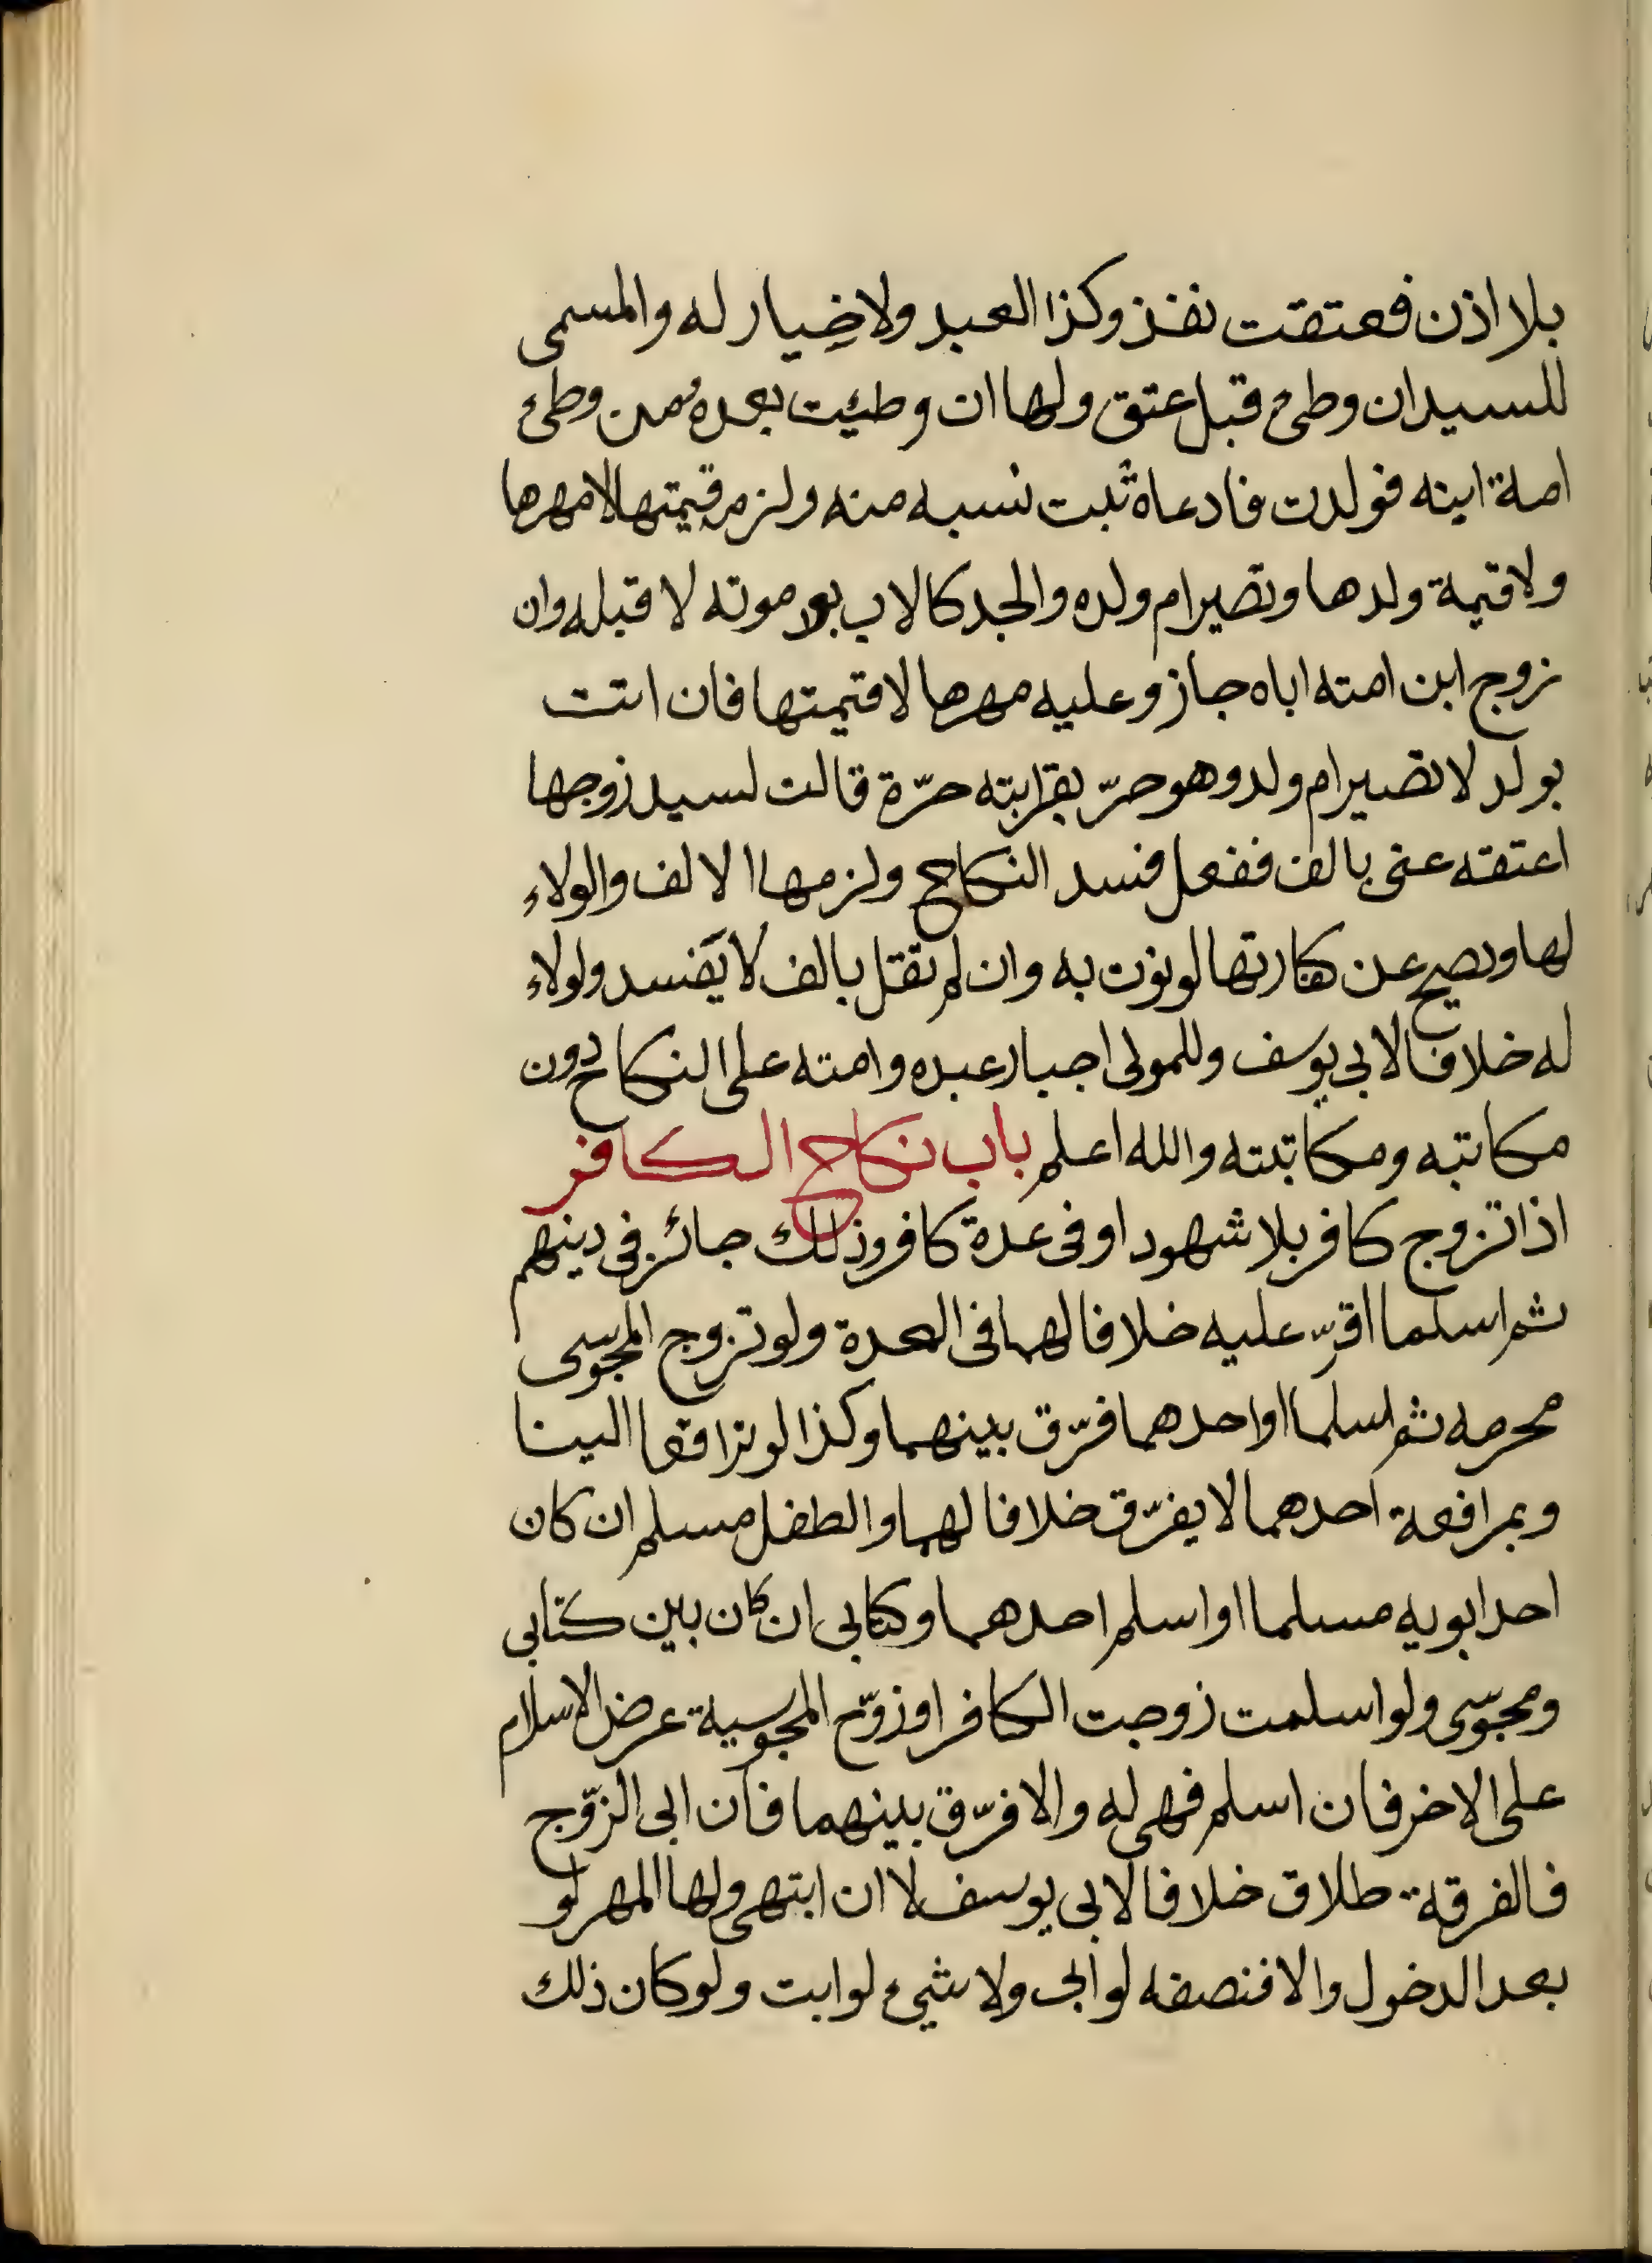 بلا اذن فعتقت نفذ وكذا العبد ولا خيار له والمسمى
للسيد ان وطئ قبل عتق ولها ان وطئت بعده ومن وطئ
امة ابنه فولدت فادعاه ثبت نسبه منه ولزم قيمتها لا مهرها
ولا قيمة ولدها وتصير ام ولده والجد كالاب بعد موته لا قبله وان
زوج ابن امته اباه جاز وعليه مهرها لا قيمتها فان اتت
بولد لا تصير ام ولد وهو حرّ بقرابته حرّة قالت لسيد زوجها
اعتقه عنى بالف ففعل فسد النكاح ولزمها الالف والولاء
لها ويصح عن كفارتها لو نوت به وان لم تقل بالف لا يَفسد ولولاء
له خلافا لابى يوسف وللمولى اجبار عبده وامته على النكاح دون
مكاتبه ومكاتبته والله اعلم باب نكاح الكافر
اذا تزوج كافر بلا شهود او فى عدة كافر وذلك جائز فى دينهم
ثم اسلما اقرّ عليه خلافا لهما فى العدة ولو تزوج المجوسى
محرمه ثم اسلما او احدهما فرّق بينهما وكذا لو ترافعا الينا
وبمرافعة احدهما لا يفرّق خلافا لهما والطفل مسلم ان كان
احد ابويه مسلما او اسلم احدهما وكتابى ان كان بين كتابى
ومجوسى ولو اسلمت زوجت الكافر او زوّج المجوسية عرض الاسلام
على الاخر فان اسلم فهى له والا فرّق بينهما فان ابى الزوّج
فالفرقة طلاق خلافا لابى يوسف لا ان ابتهى ولها المهر لو
بعد الدخول والا فنصفه لو ابى ولا شيء لو ابت ولو كان ذلك